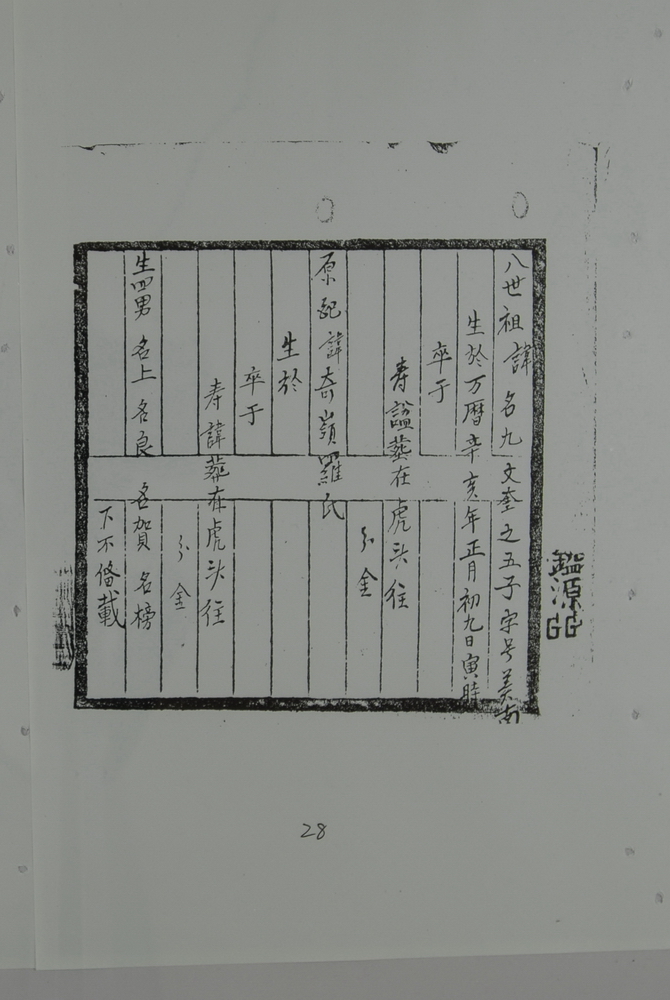 八世祖諱名九文奎之五子字号美南
生於万曆辛亥年正月初九日寅時
卒于
寿諡葬在虎头往
分金
原配諱奇嶺羅氏
生於
卒于
寿諱葬在虎头往
分金
生四男名上名良名賀名榜
下不俻載
鑑源
28